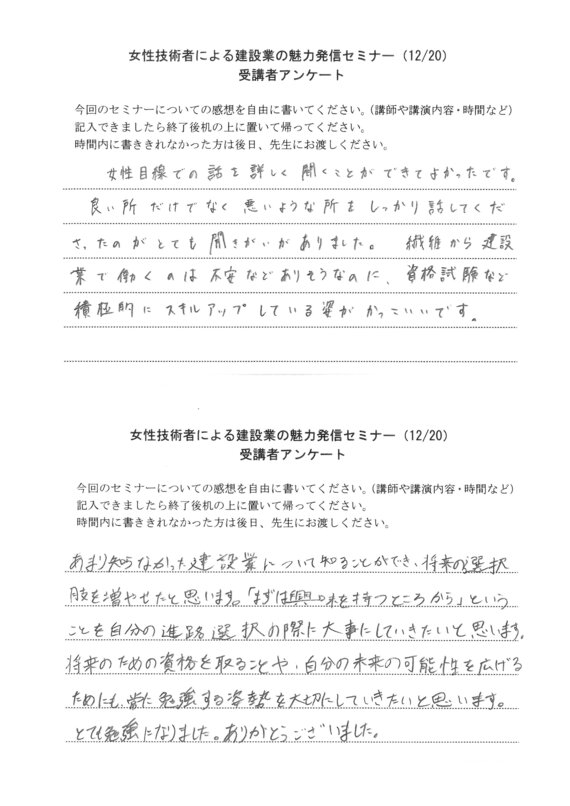 女性技術者による建設業の魅力発信セミナー（12/20）
受講者アンケート
今回のセミナーについての感想を自由に書いてください。（講師や講演内容・時間など）
記入できましたら終了後机の上に置いて帰ってください。
時間内に書ききれなかった方は後日、先生にお渡しください。
女性目線での話を詳しく聞くことができてよかったです。
良い所だけでなく悪いような所をしっかり話してくだ
さったのがとても聞きがいがありました。 繊維から建設
業で働くのは不安などありそうなのに、資格試験など
積極的にスキルアップしている姿がかっこいいです。
女性技術者による建設業の魅力発信セミナー（12/20）
受講者アンケート
今回のセミナーについての感想を自由に書いてください。（講師や講演内容・時間など）
記入できましたら終了後机の上に置いて帰ってください。
時間内に書ききれなかった方は後日、先生にお渡しください。
あまり知らなかった建設業について知ることができ、将来の選択
肢を増やせたと思います。「まずは興味を持つところから」という
ことを自分の進路選択の際に大事にしていきたいと思います。
将来のための資格を取ることや、自分の未来の可能性を広げる
ためにも、常に勉強する姿勢を大切にしていきたいと思います。
とても勉強になりました。ありがとうございました。